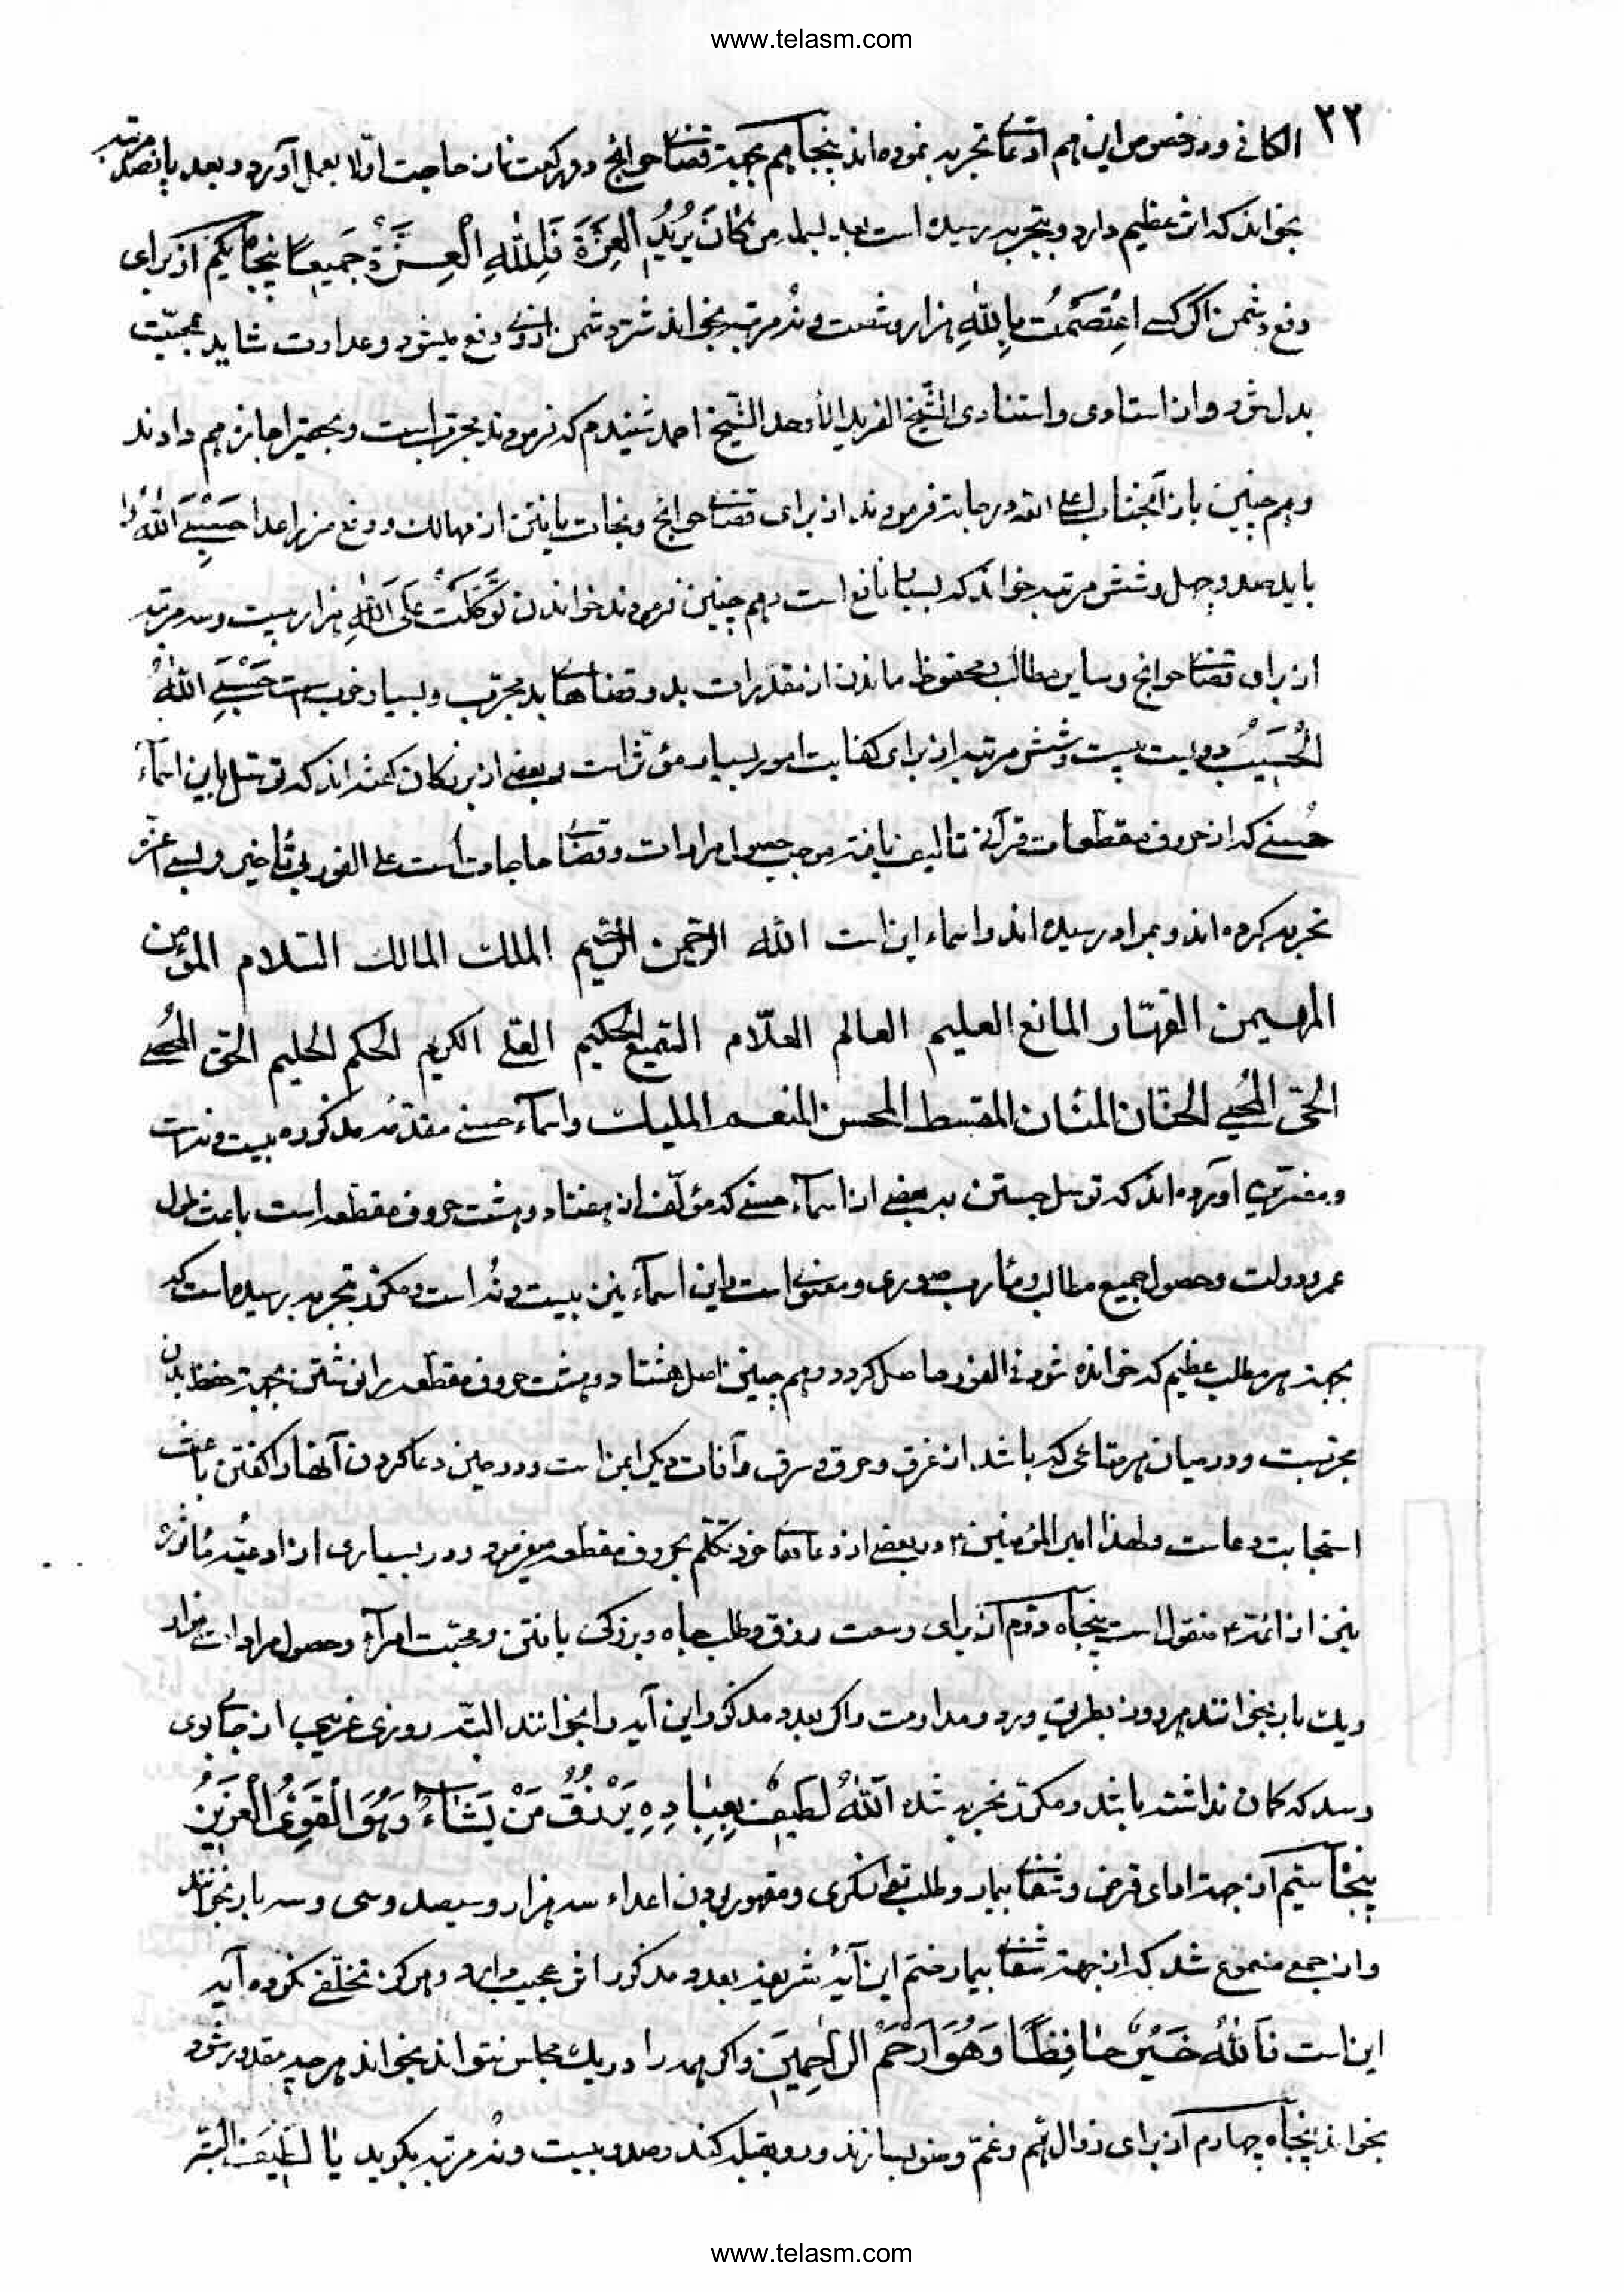 www.telasm.com
۲۲
الکافی و در خصوص این هم ادعای تجربه نموده‌اند پنجاهم بجهة قضای حوائج دو رکعت نماز حاجت اولا بعمل آورد و بعد پانصد مرتبه
بخواند که اثر عظیم دارد و بتجربه رسیده است من کَانَ یُرِیدُ الْعِزَّةَ فَلِلّٰهِ الْعِزَّةُ جَمِیعًا پنجاه یکم از برای
دفع دشمن اگر کسی اعْتَصَمْتُ بِاللّٰهِ هزار و شصت و نه مرتبه بخواند شر دشمن از وی دفع میشود و عداوت شاید بمحبّت
بدل شود و از استادی و استنادی الشیخ الفرید الأوحد الشیخ احمد شنیدم که فرمودند مجرب است و بحقیر اجازه هم دادند
و هم چنین باز آنجناب اعلی الله درجاته فرمودند از برای قضای حوائج و نجات یافتن از مهالک و دفع ضرر اعدا حَسْبِیَ اللّٰهُ را
باید صد و چهل و شش مرتبه خواند که بسیار نافع است و هم چنین فرمودند خواندن تَوَکَّلْتُ عَلَی اللّٰهِ هزار بیست و سه مرتبه
از برای قضای حوائج و سایر مطالب و محفوظ ماندن از مقدرات بد و قضاهای بد مجرّب و بسیار خوب است حَسْبِیَ اللّٰهُ
الْحَسِیبُ دویست بیست و شش مرتبه از برای کفایت امور بسیار مؤثر است بعضی از بزرکان کفته‌اند که توسّل باین اسماء
حُسنی که از حروف مقطّعات قرآنی تالیف یافته موجب حصول مرادات و قضای حاجات است علی الفور بی تأخیر و بسی اعزّه
تجربه کرده‌اند و بمراد رسیده‌اند و اسماء این است الله الرّحمن الرّحیم الملك المالك السّلام المؤمن
المهیمن القهّار المانع العلیم العالم العلّام السّمیع الحکیم العلّی الکریم الحکم الحلیم الحقّ المحصی
الحیّ المُحیی الحنّان المنّان المقسط المحسن المنعم الملیك و اسمآء حسنی مقدّمه مذکوره بیست و نه است
و مفسّرین آورده‌اند که توسل جستن ببعضی از اسمآء حسنی که مؤلف از هفتاد و هشت حروف مقطّعه است باعث طول
عمر و دولت و حصول جمیع مطالب و مآرب صوری و معنوی است و این اسمآء نیز بیست و نُه است و مکرّر بتجربه رسیده است که
بجهة هر مطلب عظیم که خوانده شود فی الفور حاصل کردد و هم چنین اصل هفتاد و هشت حروف مقطّعه را نوشتن بجهة حفظ بدن
مجرّبست و در میان هر متاعی که باشد از غرق و حرق و سرق و آفات دیکر ایمن است و در حین دعا کردن آنها را کفتن باعث
استجابت دعاست و لهذا امیر المؤمنین ع در بعضی از دعاهای خود تکلّم بحروف مقطّعه میفرمود و در بسیاری از ادعیّه مأثوره
نیز از ائمّه ع منقول است پنجاه دوّم از برای وسعت رزق و طلب جاه و بزرکی یافتن و محبّت امرآء و حصول مرادات هزار
و یك بار بخوانند هر روز بطریق ورد و مداومت و اکر بعدد مذکور این آیه را بخوانند البتّه روزی غریب از جائی بوی
رسد که کمان نداشته باشد و مکرّر تجربه شده اَللّٰهُ لَطِیفٌ بِعِبَادِهِ یَرْزُقُ مَنْ یَشَاءُ وَهُوَ الْقَوِیُّ الْعَزِیزُ
پنجاه سیّم از جهة ادای قرض و شفای بیمار و طلب توانکری و مقهور بودن اعداء سه هزار و سیصد و سی و سه بار بخوانند
و از جمعی مسموع شد که از جهة شفای بیمار ختم این آیهٔ شریفه بعدد مذکور اثر عجیب دارد و هرکز تخلّفی نکرده آیه
این است فَاللّٰهُ خَیْرٌ حَافِظًا وَهُوَ اَرْحَمُ الرَّاحِمِینَ و اکر همه را در یك مجلس نتواند بخواند هر چه مقدور شود
بخواند پنجاه چهارم از برای زوال هّم و غمّ وضو بسازند و رو بقبله کنند و صد و بیست و نُه مرتبه بکوید یَا لَطِیفُ البتّه
www.telasm.com